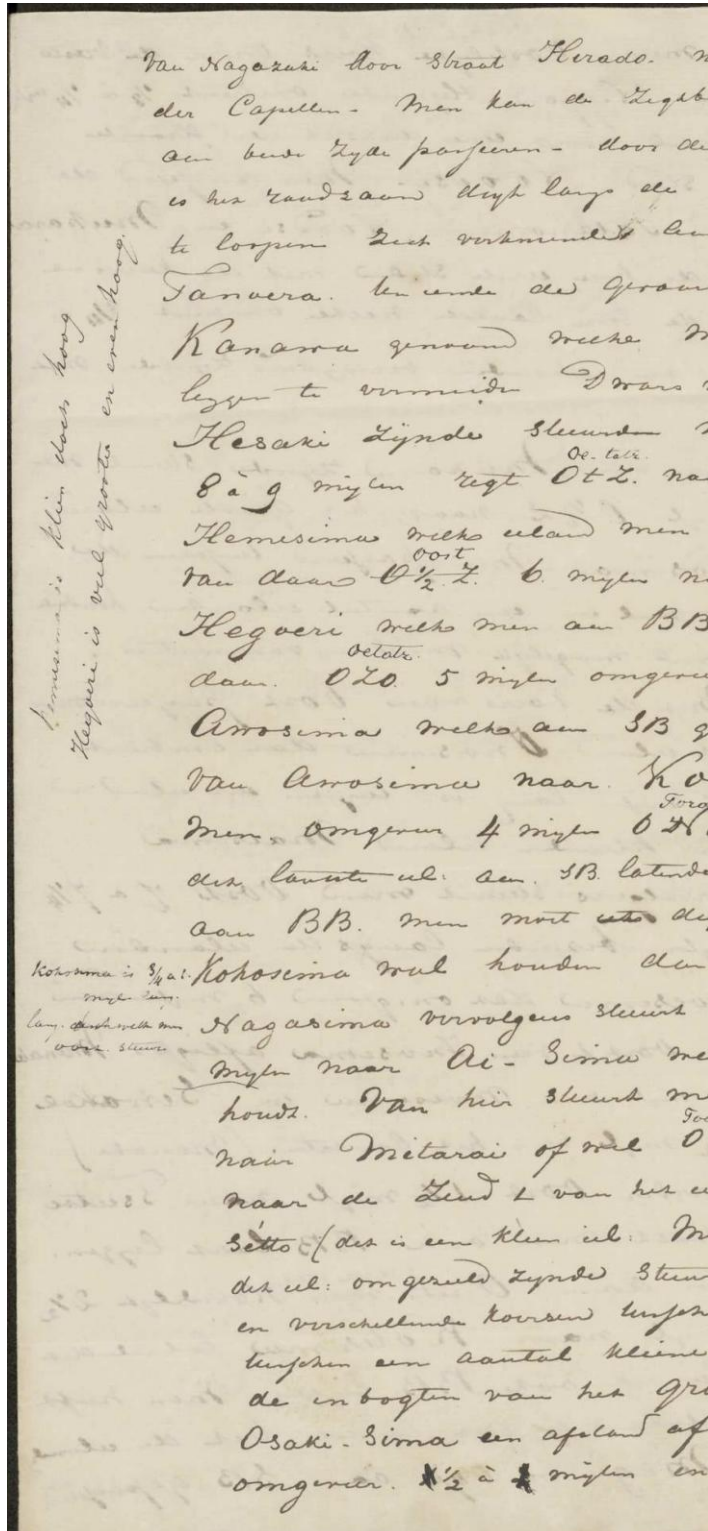 van Nagazaki door Straat Hirado.
der Capellen - Men kan de
aan beide zyde passeeren - door de
is het raadzaam digt langs de
te loopen
Tanoera.
Kanawa genaamd welke
leggen te vermeiden Dwars
Hesaki zynde stuurden
Oe-tatz.
8 à 9 mylen regt OtZ. na
Hemesima welk eiland men
oost
van daar O½Z. 6. mylen n
Hegoeri welk men aan BB
Oetatz.
daar. OZO. 5 mylen omgeveer
Awosima welk aan SB g
van Awosima naar. Ko
Torq
Men. omgeveer 4 mylen O
dit laatste eil: aan. SB. latende
aan BB. men moet
Kokosima wal houden dan
Nagasima vervolgens stuurt
mylen naar Ai-Sima we
houdt. Van hier stuurt m
naar Mitarai of wel O
naar de Zuid t van het e
Sétto (dit is een klein eil: M
dit eil: omgezeild zynde Stuu
en verschillende koersen tussche
tusschen een aantal kleine
de inbogten van het gr
Osaki-Sima een afstand af
omgeveer. ½ à mylen en
Hemesima is klein doch hoog
Hegoeri is veel grooter en even hoog.
Kokosima is ¾ a 1.
myl lang.